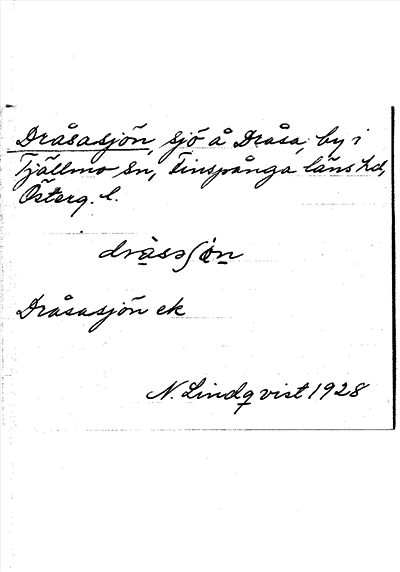 Dråsasjön, sjö å Dråsa, by i
Tjällmo sn, Finspånga läns hd,
Österg. l.
dråsəʃön
Dråsasjön ek
N. Lindqvist 1928